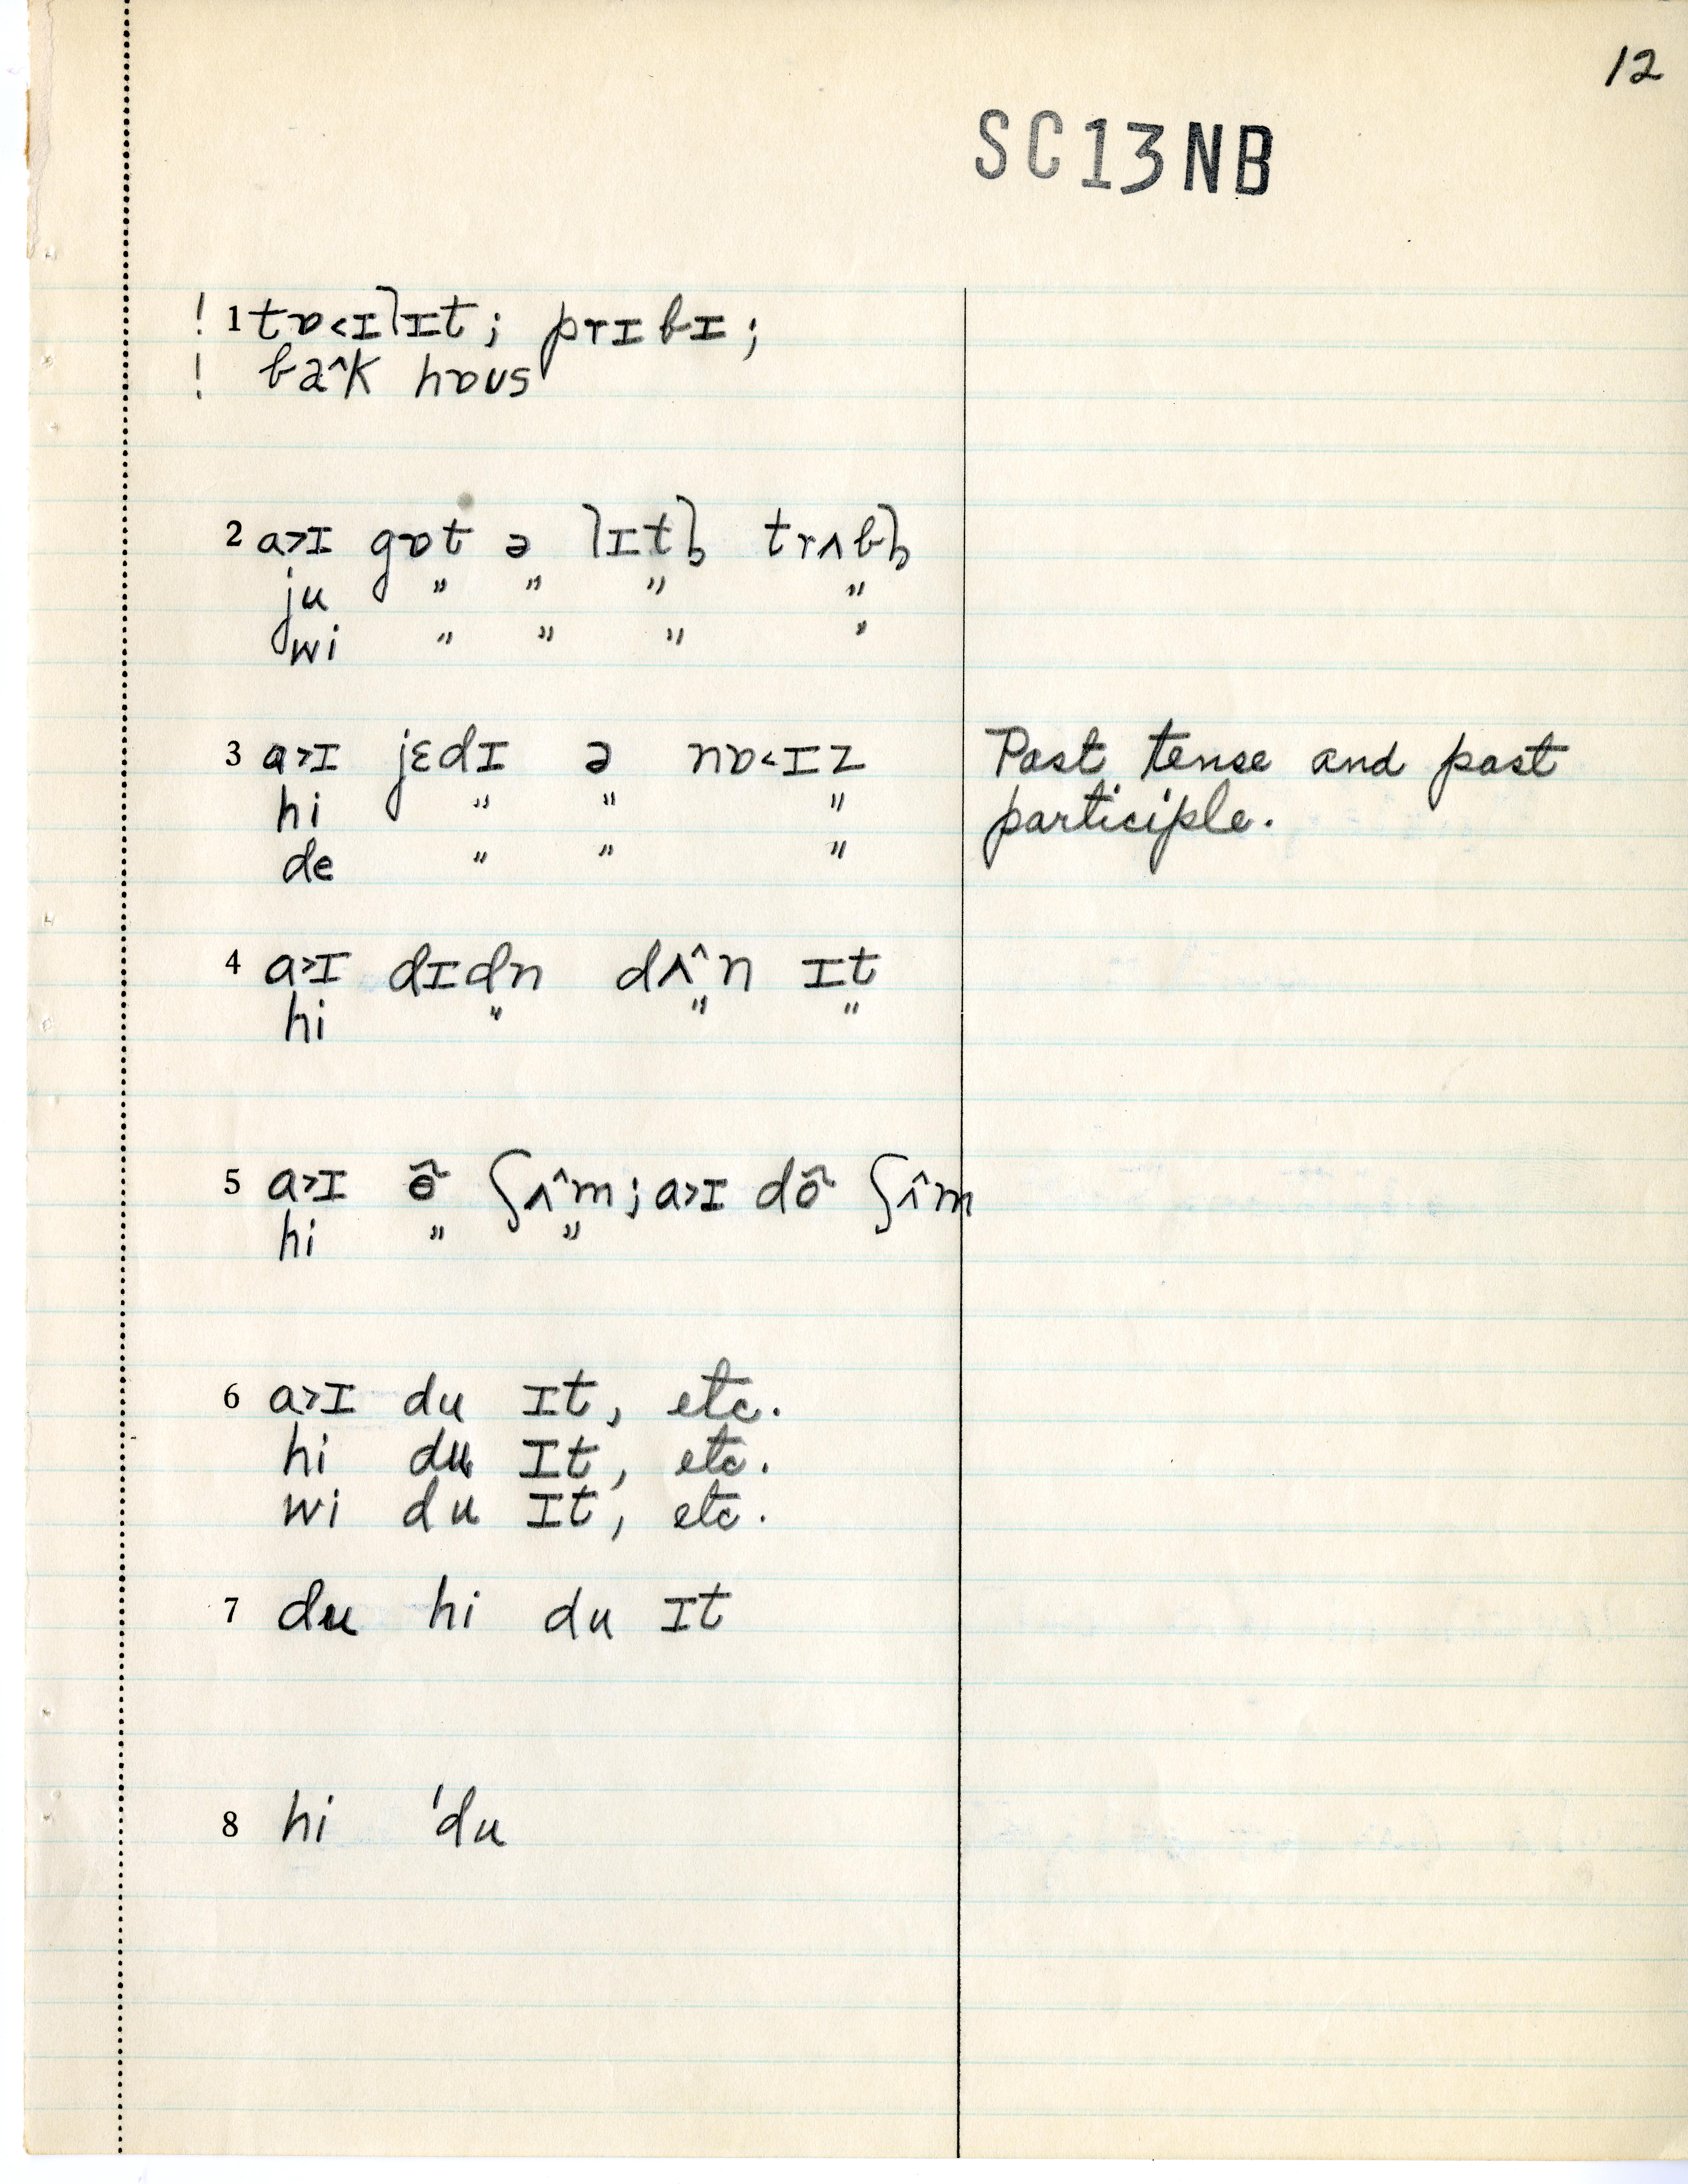 12
SC13NB
! 1 tɒ<ɪlɪt; prɪbɪ;
! ba^k hɒus
2 a>ɪ gɒt ə lɪtḷ trʌbḷ
ju " " " "
wi " " " "
3 a>ɪ jɛdɪ ə nɒ<ɪz Past tense and past
hi " " " participle.
de " " "
4 a>ɪ dɪdn dʌ^n ɪt
hi " " "
5 a>ɪ ʃʌ^m; a>ɪ ʃʌ^m
hi " "
6 a>ɪ du ɪt, etc.
hi du ɪt, etc.
wi du ɪt, etc.
7 du hi du ɪt
8 hi 'du